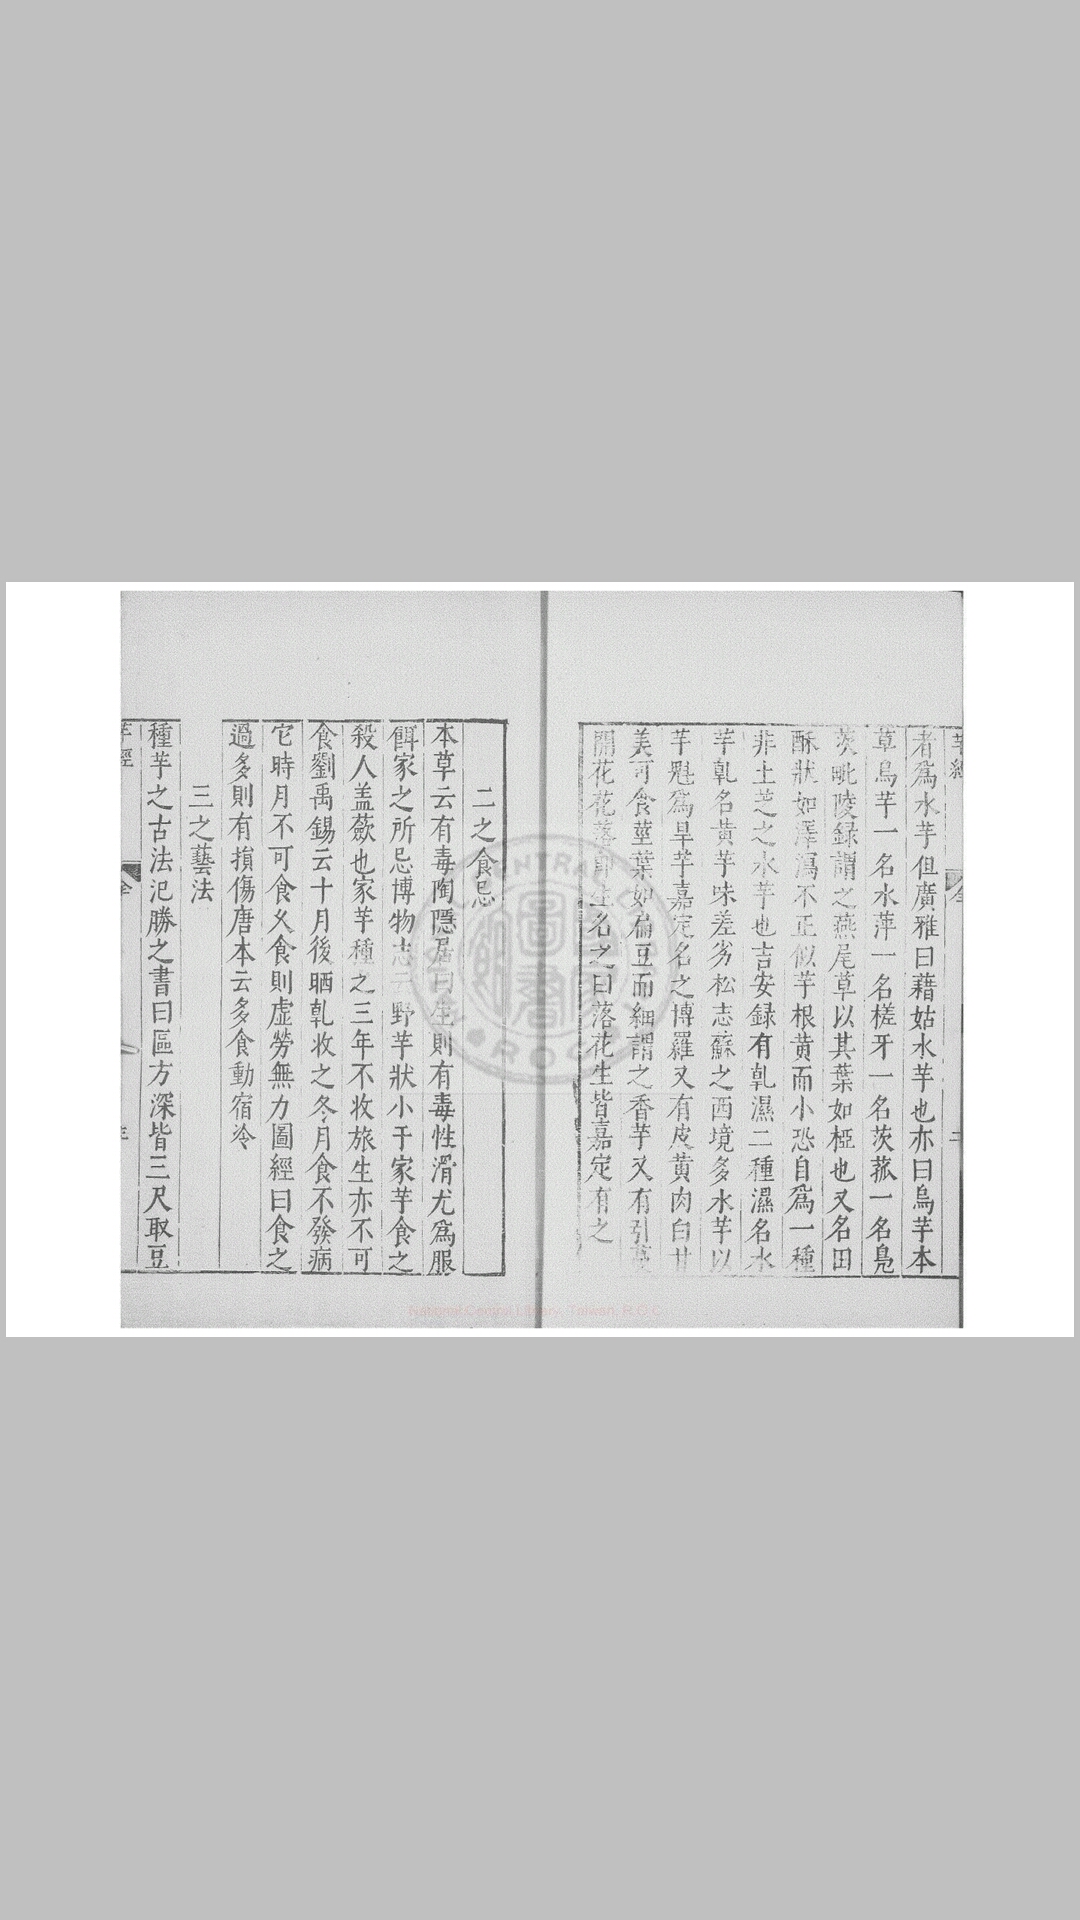 芋經
二
者爲水芋但廣雅曰藉姑水芋也亦曰烏芋本
草烏芋一名水萍一名槎牙一名茨菰一名鳧
茨毗陵録謂之燕尾草以其葉如椏也又名田
酥狀如澤瀉不正似芋根黃而小恐自爲一種
非土芝之水芋也吉安録有乹濕二種濕名水
芋乹名黃芋味差劣松志蘇之西境多水芋以
芋魁爲旱芋嘉定名之博羅又有皮黃肉白甘
美可食莖葉如扁豆而細謂之香芋又有引蔓
開花花落即生名之曰落花生皆嘉定有之
二之食忌
本草云有毒陶隱居曰生則有毒性滑尤爲服
餌家之所忌博物志云野芋狀小于家芋食之
殺人盖蔋也家芋種之三年不收旅生亦不可
食劉禹錫云十月後晒乹收之冬月食不發病
它時月不可食久食則虛勞無力圖經曰食之
過多則有損傷唐本云多食動宿冷
三之藝法
種芋之古法氾勝之書曰區方深皆三尺取豆
芋經
全
National Central Library, Taiwan, R.O.C